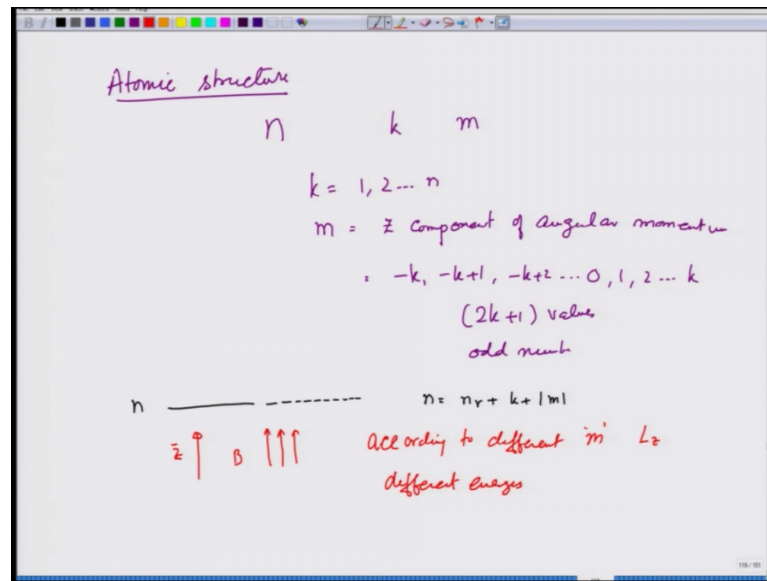 Atomic structure
n k m
k = 1, 2 --- n
m = z component of angular momentum
= -k, -k+1, -k+2 --- 0, 1, 2 --- k
(2k+1) values
odd numb
n n = nr + k + |m|
z B according to different 'm' Lz
different energes
119 / 151